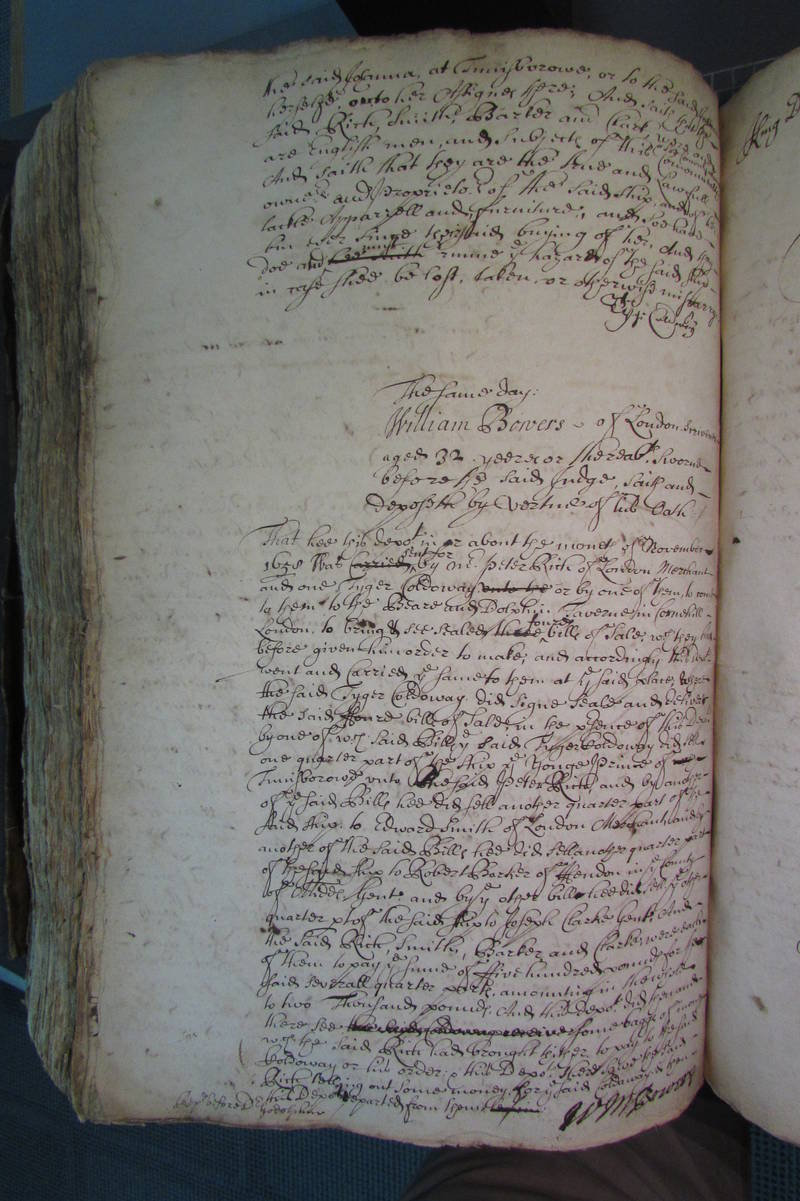 the said Joanna, at Tunisborowe, or to the said
herselfe, or to her Assignes there; And saith the
said Rich, Smith, Barker and Clark, were and
are English men, and Subjects of this Commonwealth
And saith that they are the true and Lawfull
owners and Proprieto.rs of the said ship, and of her
tackle Apparell and furniture, and soe have
bin ever since theyr said buying of her, And
doe and must runne ye hazard of the said ship
in case shee be lost, taken, or otherwise miscarry
The same day:
William Bowers - of London Scrivener
aged 32 yeeres or thereabts. Sworne
before the said Judge, saith and
deposeth by vertue of his Oath
That hee this depot. in or about the moneth of November
1658 was carried sent for by Mr. Peter Rich of London Merchant
and one Tyger Coldoway unto the or by one of them, to come
to them to the Beare and Dolphin Taverne in Cornehill
London, to bring & see sealed these foure bills of Sale, wch they had
before given him order to make; and accordingly this depot.
went and carried ye same to them at ye said place, where
the said Tyger Coldoway did signe seale and deliver
the said ffoure bills of Sale, in the presence of this Depot
by one of wch said Bills ye said Tyger Coldoway did sell
one quarter part of the ship ye Yonge Prince of
Tunisborowe unto the said Peter Rich, and by another
of ye said Bills hee did sell another quarter part of the
said ship to Edward Smith of London Merchant, and by
another of the said Bills hee did sell another quarter part
of the said ship to Robert Barker of Hendon in ye County
of Midd. Gent. and by ye other bill hee did sell ye other
quarter pt of the said ship to Joseph Clarke Gent. And
the said Rich, Smith, Barker and Clarke, were each
of them to pay ye summe of ffive hundred pounds for his
said severall quarter parte, amounting in the whole
to two Thousand pounds, And this Depot. did then and
there see the said Coldoway receive some bags of money
wch the said Rich had brought thither to pay to the said
Coldoway or his order, & this Depot. there saw the said
Rich telling out some money for ye said Coldoway & then
this Depot departed from them
Wm Bowers
Rept. before Dr.
Godolphin